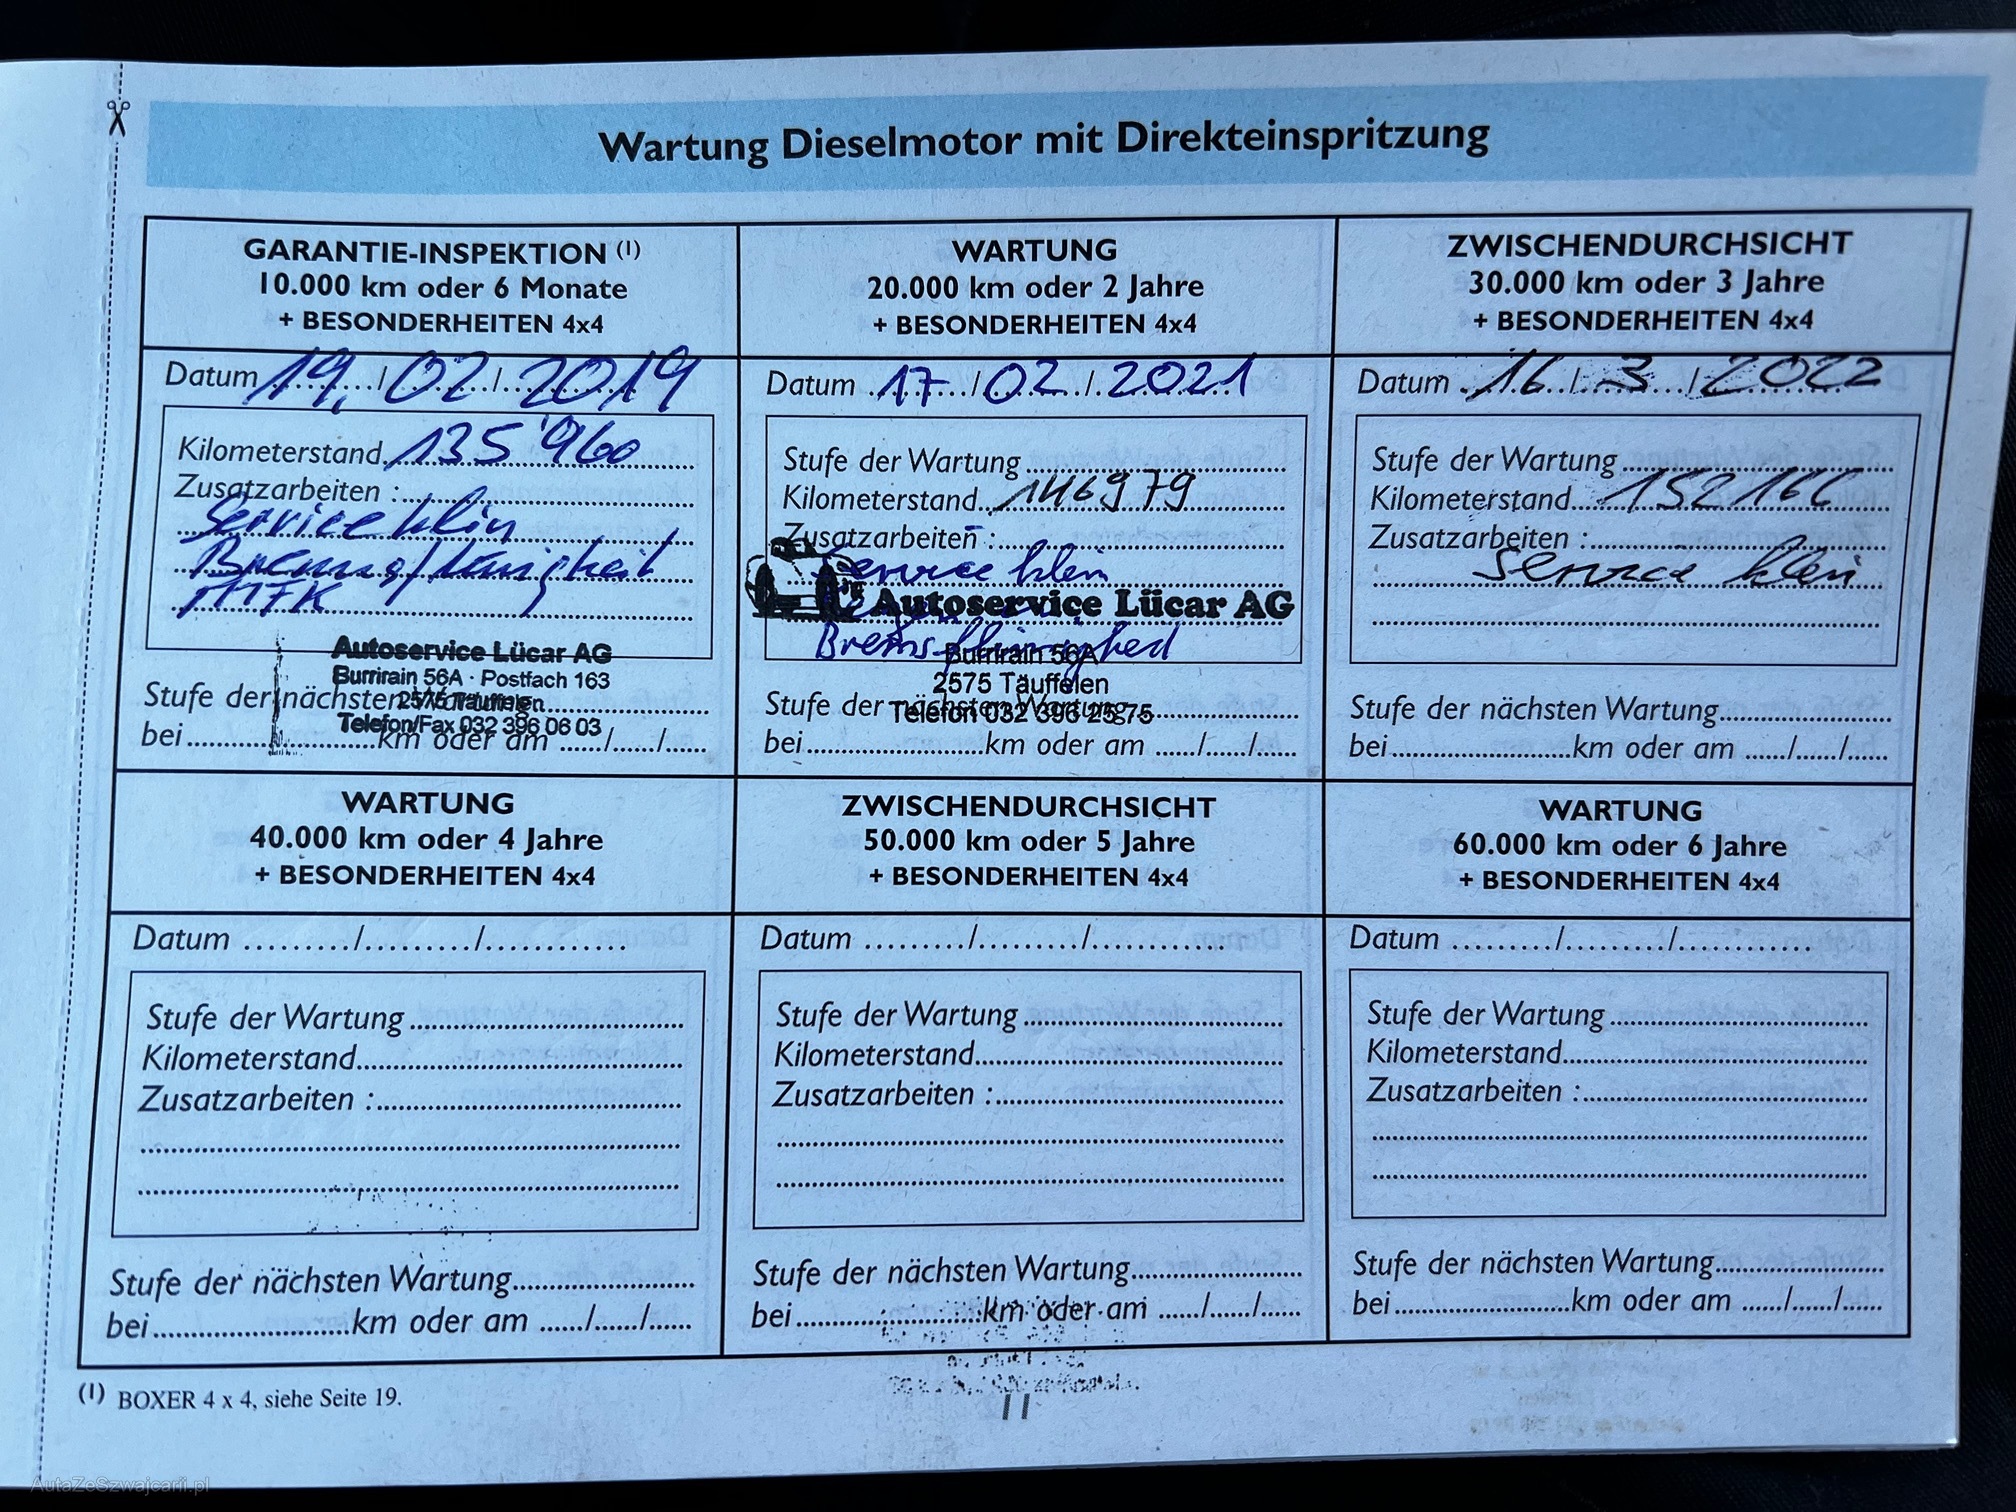 Wartung Dieselmotor mit Direkteinspritzung
GARANTIE-INSPEKTION (1)
10.000 km oder 6 Monate
+ BESONDERHEITEN 4x4
Datum 19. / 02 / 2019
Kilometerstand 135'960
Zusatzarbeiten :
Service klin
MFK
Autoservice Lücar AG
Burrirain 56A · Postfach 163
2575 Täuffelen
Telefon/Fax 032 396 06 03
Stufe der nächsten Wartung
bei km oder am ....../....../......
WARTUNG
20.000 km oder 2 Jahre
+ BESONDERHEITEN 4x4
Datum 17 / 02 / 2021
Stufe der Wartung
Kilometerstand 146979
Zusatzarbeiten :
Service klein
Autoservice Lücar AG
Burrirain 56A
2575 Täuffelen
Telefon 032 396 25 75
Stufe der nächsten Wartung
bei km oder am ....../....../......
ZWISCHENDURCHSICHT
30.000 km oder 3 Jahre
+ BESONDERHEITEN 4x4
Datum 16 / 3 / 2022
Stufe der Wartung
Kilometerstand 152166
Zusatzarbeiten :
Service klein
Stufe der nächsten Wartung
bei km oder am ....../....../......
WARTUNG
40.000 km oder 4 Jahre
+ BESONDERHEITEN 4x4
Datum ........./........./............
Stufe der Wartung
Kilometerstand
Zusatzarbeiten :
Stufe der nächsten Wartung
bei km oder am ....../....../......
ZWISCHENDURCHSICHT
50.000 km oder 5 Jahre
+ BESONDERHEITEN 4x4
Datum ........./........./............
Stufe der Wartung
Kilometerstand
Zusatzarbeiten :
Stufe der nächsten Wartung
bei km oder am ....../....../......
WARTUNG
60.000 km oder 6 Jahre
+ BESONDERHEITEN 4x4
Datum ........./........./............
Stufe der Wartung
Kilometerstand
Zusatzarbeiten :
Stufe der nächsten Wartung
bei km oder am ....../....../......
(1) BOXER 4 x 4, siehe Seite 19.
11
AutaZeSzwajcarii.pl